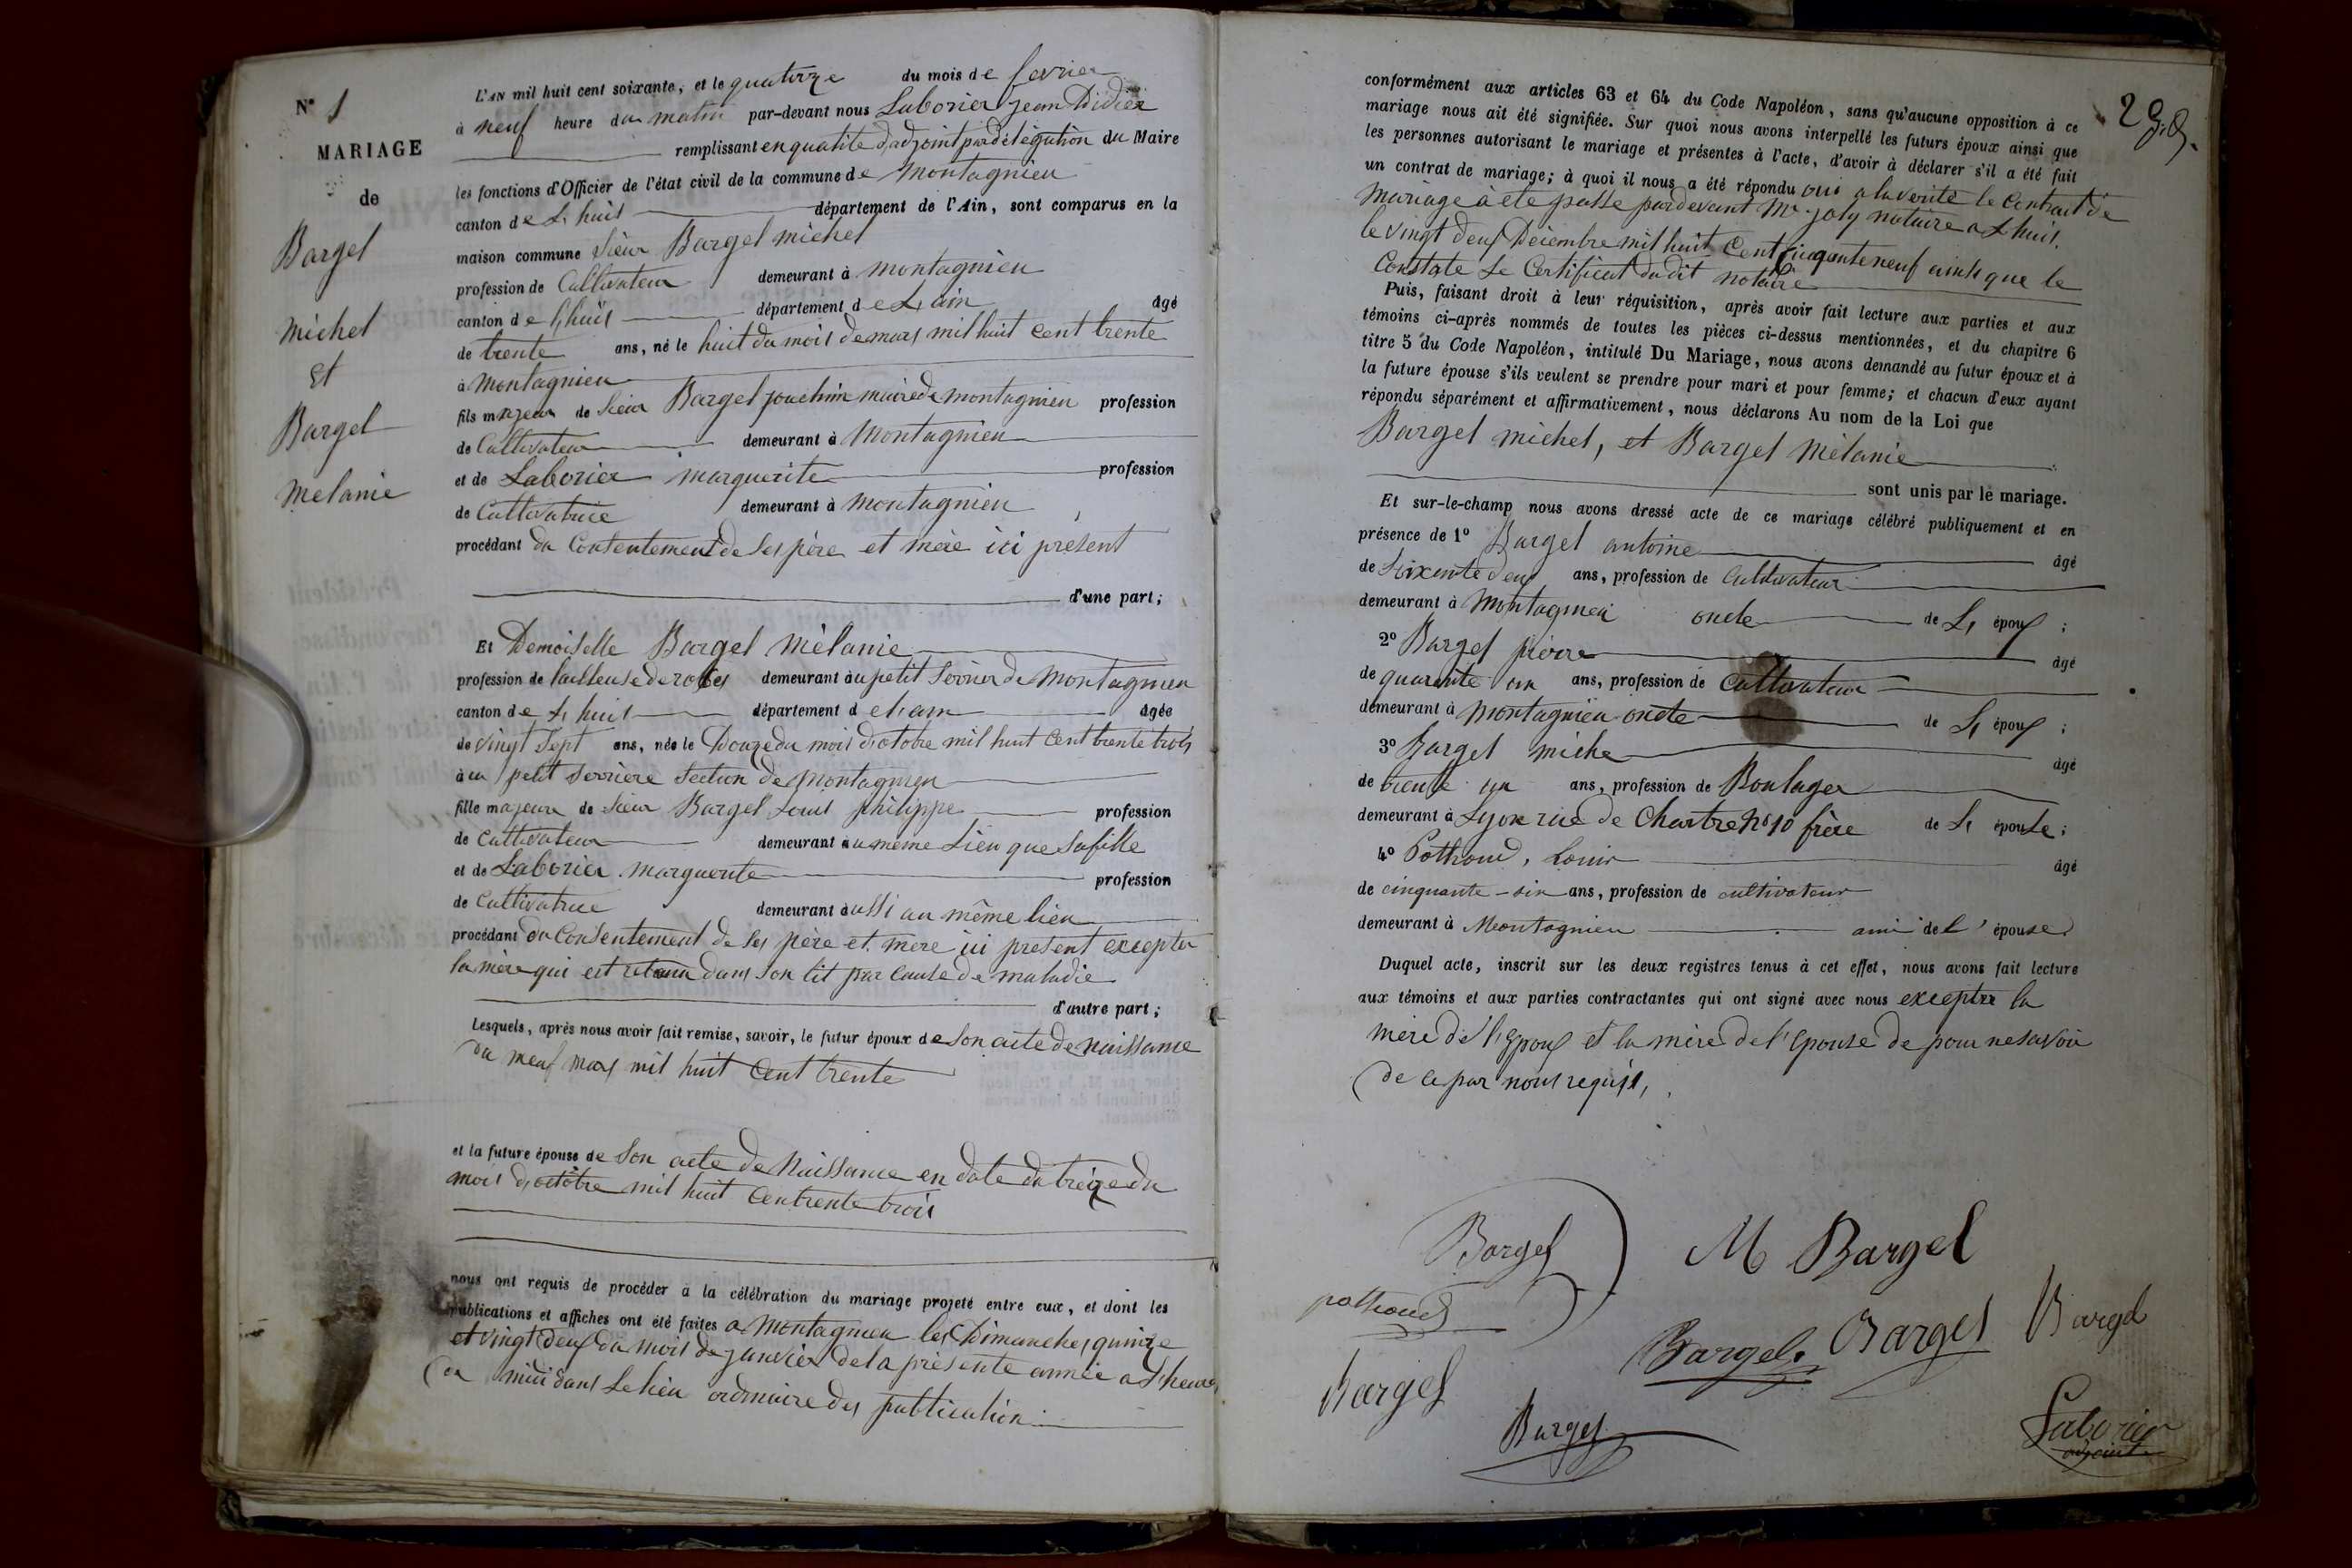 N° 1
MARIAGE
de
Bargel
michel
et
Bargel
melanie
L'AN mil huit cent soixante, et le quatorze du mois de fevrier
à neuf heure du matin par-devant nous Laborier jean Didier
remplissant en qualité d'adjoint par délégation du Maire
les fonctions d'Officier de l'état civil de la commune de Montagnieu
canton de L'huis département de l'Ain, sont comparus en la
maison commune sieur Bargel michel
profession de Cultivateur demeurant à montagnieu
canton de L'huis département de L'ain âgé
de trente ans, né le huit du mois de mars mil huit cent trente
à Montagnieu
fils majeur de sieur Bargel jouchim maire de montagnieu profession
de Cultivateur demeurant à Montagnieu
et de Laborier marguerite profession
de Cultivatrice demeurant à montagnieu
procédant du Consentement de ses père et mère ici présent
d'une part;
Et Demoiselle Bargel Mèlanie
profession de tailleuse de robes demeurant au petit Serrier de Montagnieu
canton de L'huis département de L'ain âgée
de vingt sept ans, née le Douze du mois d'octobre mil huit cent trente trois
à au petit Serrière section de Montagnieu
fille majeure de sieur Bargel Louis philippe profession
de cultivateur demeurant au même Lieu que sa fille
et de Laborier marguerite profession
de Cultivatrice demeurant aussi au même lieu
procédant du Consentement de ses père et mere ici present excepter
la mère qui est retenu dans son lit par cause de maladie
d'autre part;
Lesquels, après nous avoir fait remise, savoir, le futur époux de son acte de naissance
du neuf mars mil huit Cent trente
et la future épouse de son acte de Naissance en date du treize du
mois d'octobre mil huit Centrente trois
nous ont requis de procéder à la célébration du mariage projeté entre eux, et dont les
publications et affiches ont été faites a Montagnieu les Dimanches quinze
et vingt deux du mois de janvier de la présente année a L'heure
de midi dans Le lieu ordinaire des publication
29.
conformément aux articles 63 et 64 du Code Napoléon, sans qu'aucune opposition à ce
mariage nous ait été signifiée. Sur quoi nous avons interpellé les futurs époux ainsi que
les personnes autorisant le mariage et présentes à l'acte, d'avoir à déclarer s'il a été fait
un contrat de mariage; à quoi il nous a été répondu oui a la verité le Contrait de
mariage à été passé pardevant Mr. joly notaire a L'huis.
le vingt deux Décembre mil huit Cent cinquante neuf ainsi que le
Constate Le Certificat du dit notaire
Puis, faisant droit à leur réquisition, après avoir fait lecture aux parties et aux
témoins ci-après nommés de toutes les pièces ci-dessus mentionnées, et du chapitre 6
titre 5 du Code Napoléon, intitulé Du Mariage, nous avons demandé au futur époux et à
la future épouse s'ils veulent se prendre pour mari et pour femme; et chacun d'eux ayant
répondu séparément et affirmativement, nous déclarons Au nom de la Loi que
Bargel michel, et Bargel Mèlanie
sont unis par le mariage.
Et sur-le-champ nous avons dressé acte de ce mariage célébré publiquement et en
présence de 1° Bargel antoine âgé
de Soixente deux ans, profession de Cultivateur
demeurant à Montagnieu oncle de L'époux ;
2° Bargel pierre âgé
de quarente un ans, profession de Cultivateur
demeurant à Montagnieu oncle de L'époux ;
3° Bargel miche âgé
de trente un ans, profession de Boulager
demeurant à Lyon rue de Chartre N° 10 frère de L'épouse ;
4° Pothoud, Louis âgé
de cinquante-six ans, profession de cultivateur
demeurant à Montagnieu ami de L'épouse.
Duquel acte, inscrit sur les deux registres tenus à cet effet, nous avons fait lecture
aux témoins et aux parties contractantes qui ont signé avec nous excepter la
mère de L'Epoux et la mère de l'epouse de pour ne savoir
de ce par nous requis,
Bargel M Bargel
pothoud
Bargel Bargel Bargel
Bargel
Bargel
Laborier
adjoint